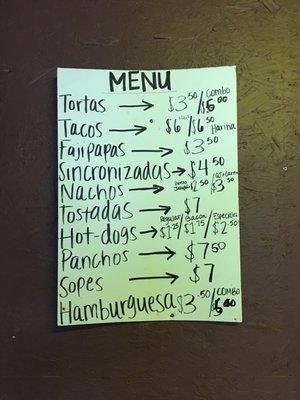 MENU
Tortas → $3.50/Combo $5.00
Tacos → $6/$6.50 Harina
Fajipapas → $3.50
Sincronizadas → $4.50
Nachos → $2.50/$3.50
Tostadas → $7
Hot-dogs → Regular $1.25/Bacon $1.75/Especiales $2.50
Panchos → $7.50
Sopes → $7
Hamburguesa $3.50/COMBO